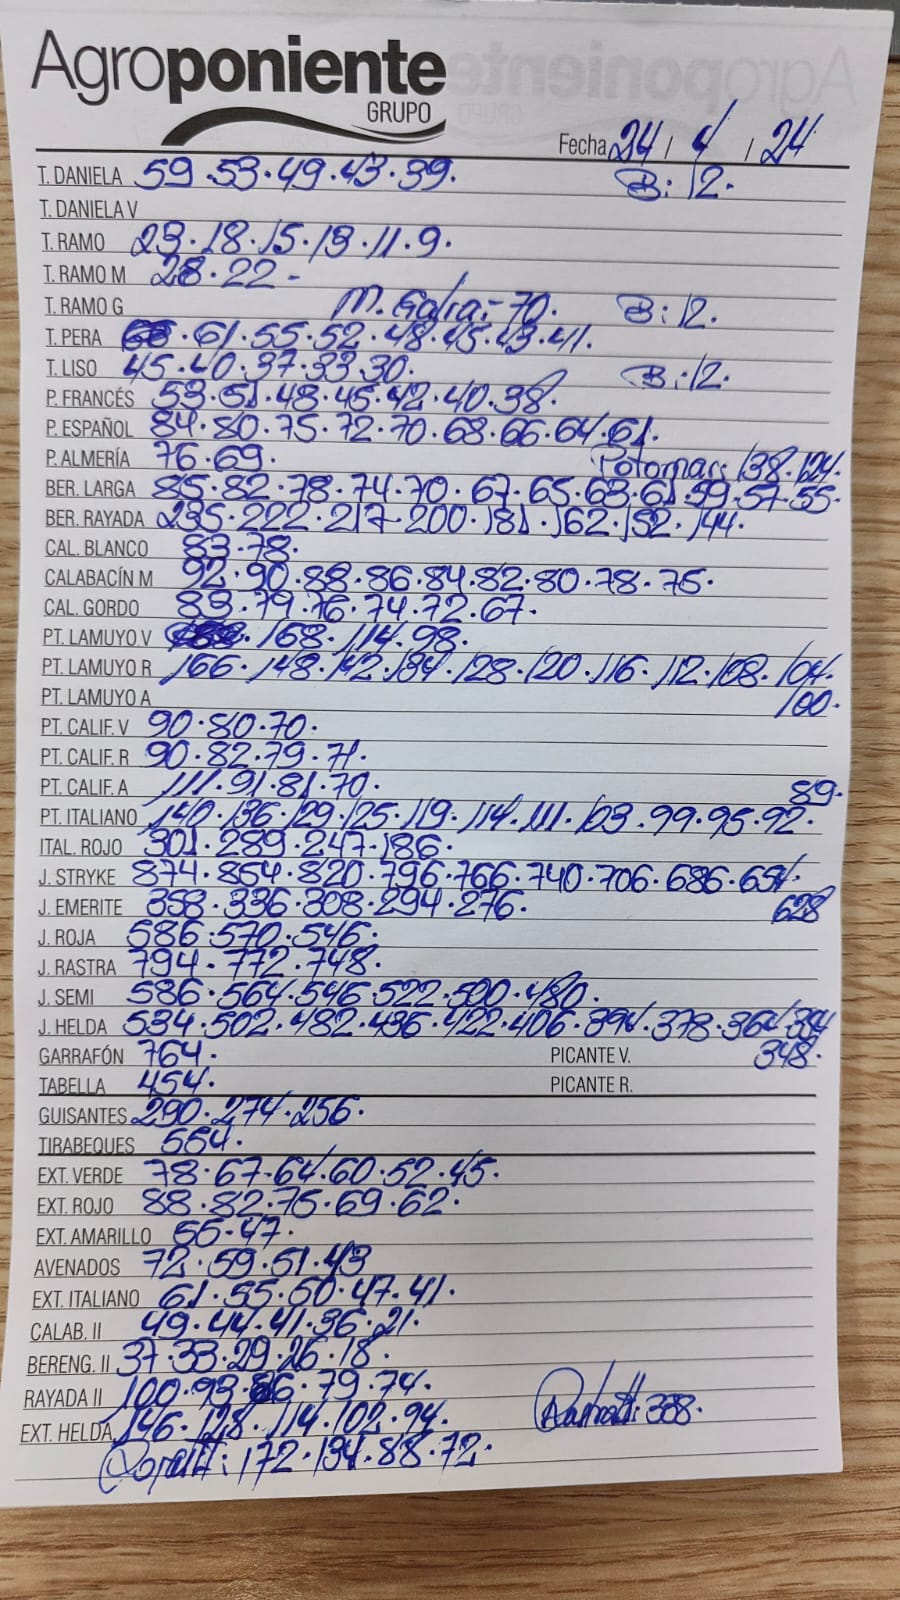 Agroponiente
GRUPO
Fecha 24 / 4 / 24
T. DANIELA 59.53.49.43.39. B: 12.
T. DANIELA V
T. RAMO 23.18.15.13.11.9.
T. RAMO M 28.22-
T. RAMO G M. Galia:-70. B:12.
T. PERA .61.55.52.48.45.43.41.
T. LISO 45.40.37.33.30. B:12.
P. FRANCÉS 53.51.48.45.42.40.38.
P. ESPAÑOL 84.80.75.72.70.68.66.64.61.
P. ALMERÍA 76.69. Potomac: 138.124.
BER. LARGA 85.82.78.74.70.67.65.63.61.59.57.55.
BER. RAYADA 235.222.217.200.181.162.152.144.
CAL. BLANCO 83.78.
CALABACÍN M 92.90.88.86.84.82.80.78.75.
CAL. GORDO 83.79.76.74.72.67.
PT. LAMUYO V .168.114.98.
PT. LAMUYO R 166.148.142.134.128.120.116.112.108.104.
PT. LAMUYO A 100.
PT. CALIF. V 90.80.70.
PT. CALIF. R 90.82.79.71.
PT. CALIF. A 111.91.81.70. 89.
PT. ITALIANO 140.136.129.125.119.114.111.103.99.95.92.
ITAL. ROJO 301.289.247.186.
J. STRYKE 874.854.820.796.766.740.706.686.654.
J. EMERITE 358.336.308.294.276. 628
J. ROJA 586.570.546.
J. RASTRA 794.772.748.
J. SEMI 586.564.546.522.500.480.
J. HELDA 534.502.482.436.422.406.394.378.364.354
GARRAFÓN 764. PICANTE V. 348.
TABELLA 454. PICANTE R.
GUISANTES 290.274.256.
TIRABEQUES 554.
EXT. VERDE 78.67.64.60.52.45.
EXT. ROJO 88.82.75.69.62.
EXT. AMARILLO 55.47.
AVENADOS 72.59.51.43
EXT. ITALIANO 61.55.50.47.41.
CALAB. II 49.44.41.36.21.
BERENG. II 37.33.29.26.18.
RAYADA II 100.93.86.79.74.
EXT. HELDA 146.128.114.102.94. 338.
: 172.134.88.72.